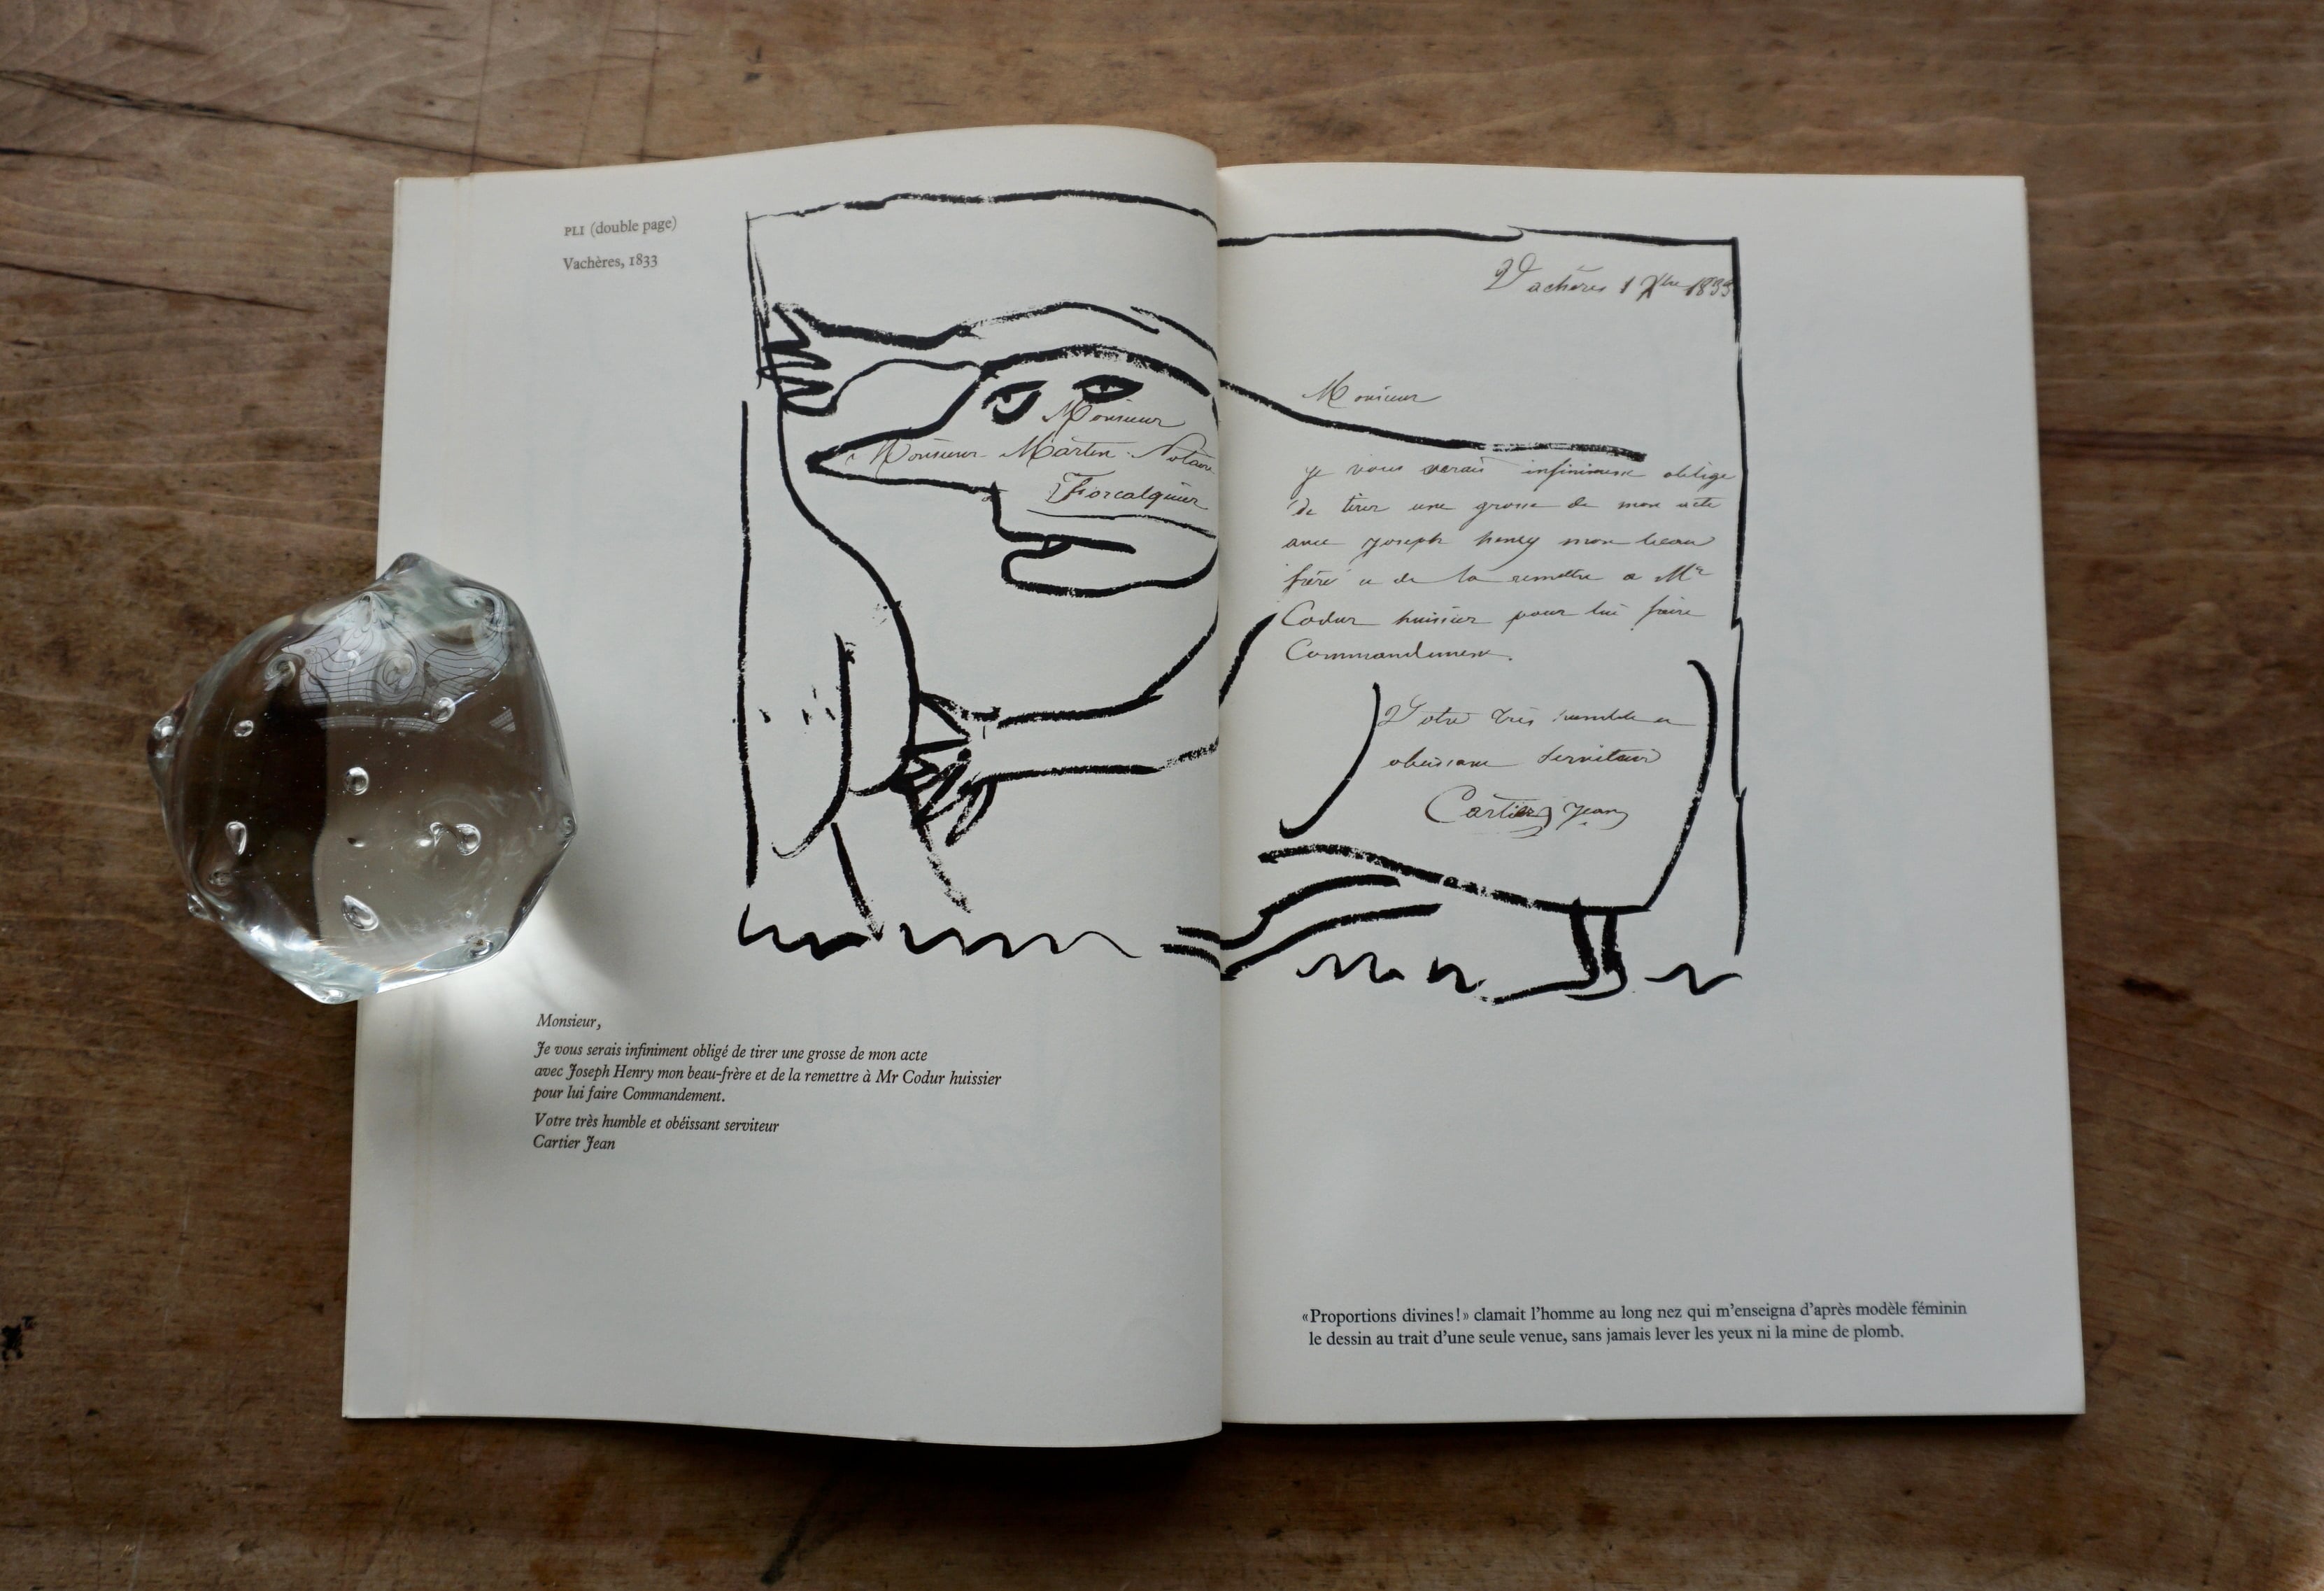 PLI (double page)
Vachères, 1833
Monsieur
Monsieur Martin Notaire
Forcalquier
Monsieur,
Je vous serais infiniment obligé de tirer une grosse de mon acte
avec Joseph Henry mon beau-frère et de la remettre à Mr Codur huissier
pour lui faire Commandement.
Votre très humble et obéissant serviteur
Cartier Jean
Vachères 1 Xbre 1833
Monsieur
Je vous serais infiniment oblige
de tirer une grosse de mon acte
avec Joseph henry mon beau
frère et de la remettre a Mr
Codur huissier pour lui faire
Commandement.
Votre très humble et
obeissant serviteur
Cartier Jean
«Proportions divines!» clamait l'homme au long nez qui m'enseigna d'après modèle féminin
le dessin au trait d'une seule venue, sans jamais lever les yeux ni la mine de plomb.